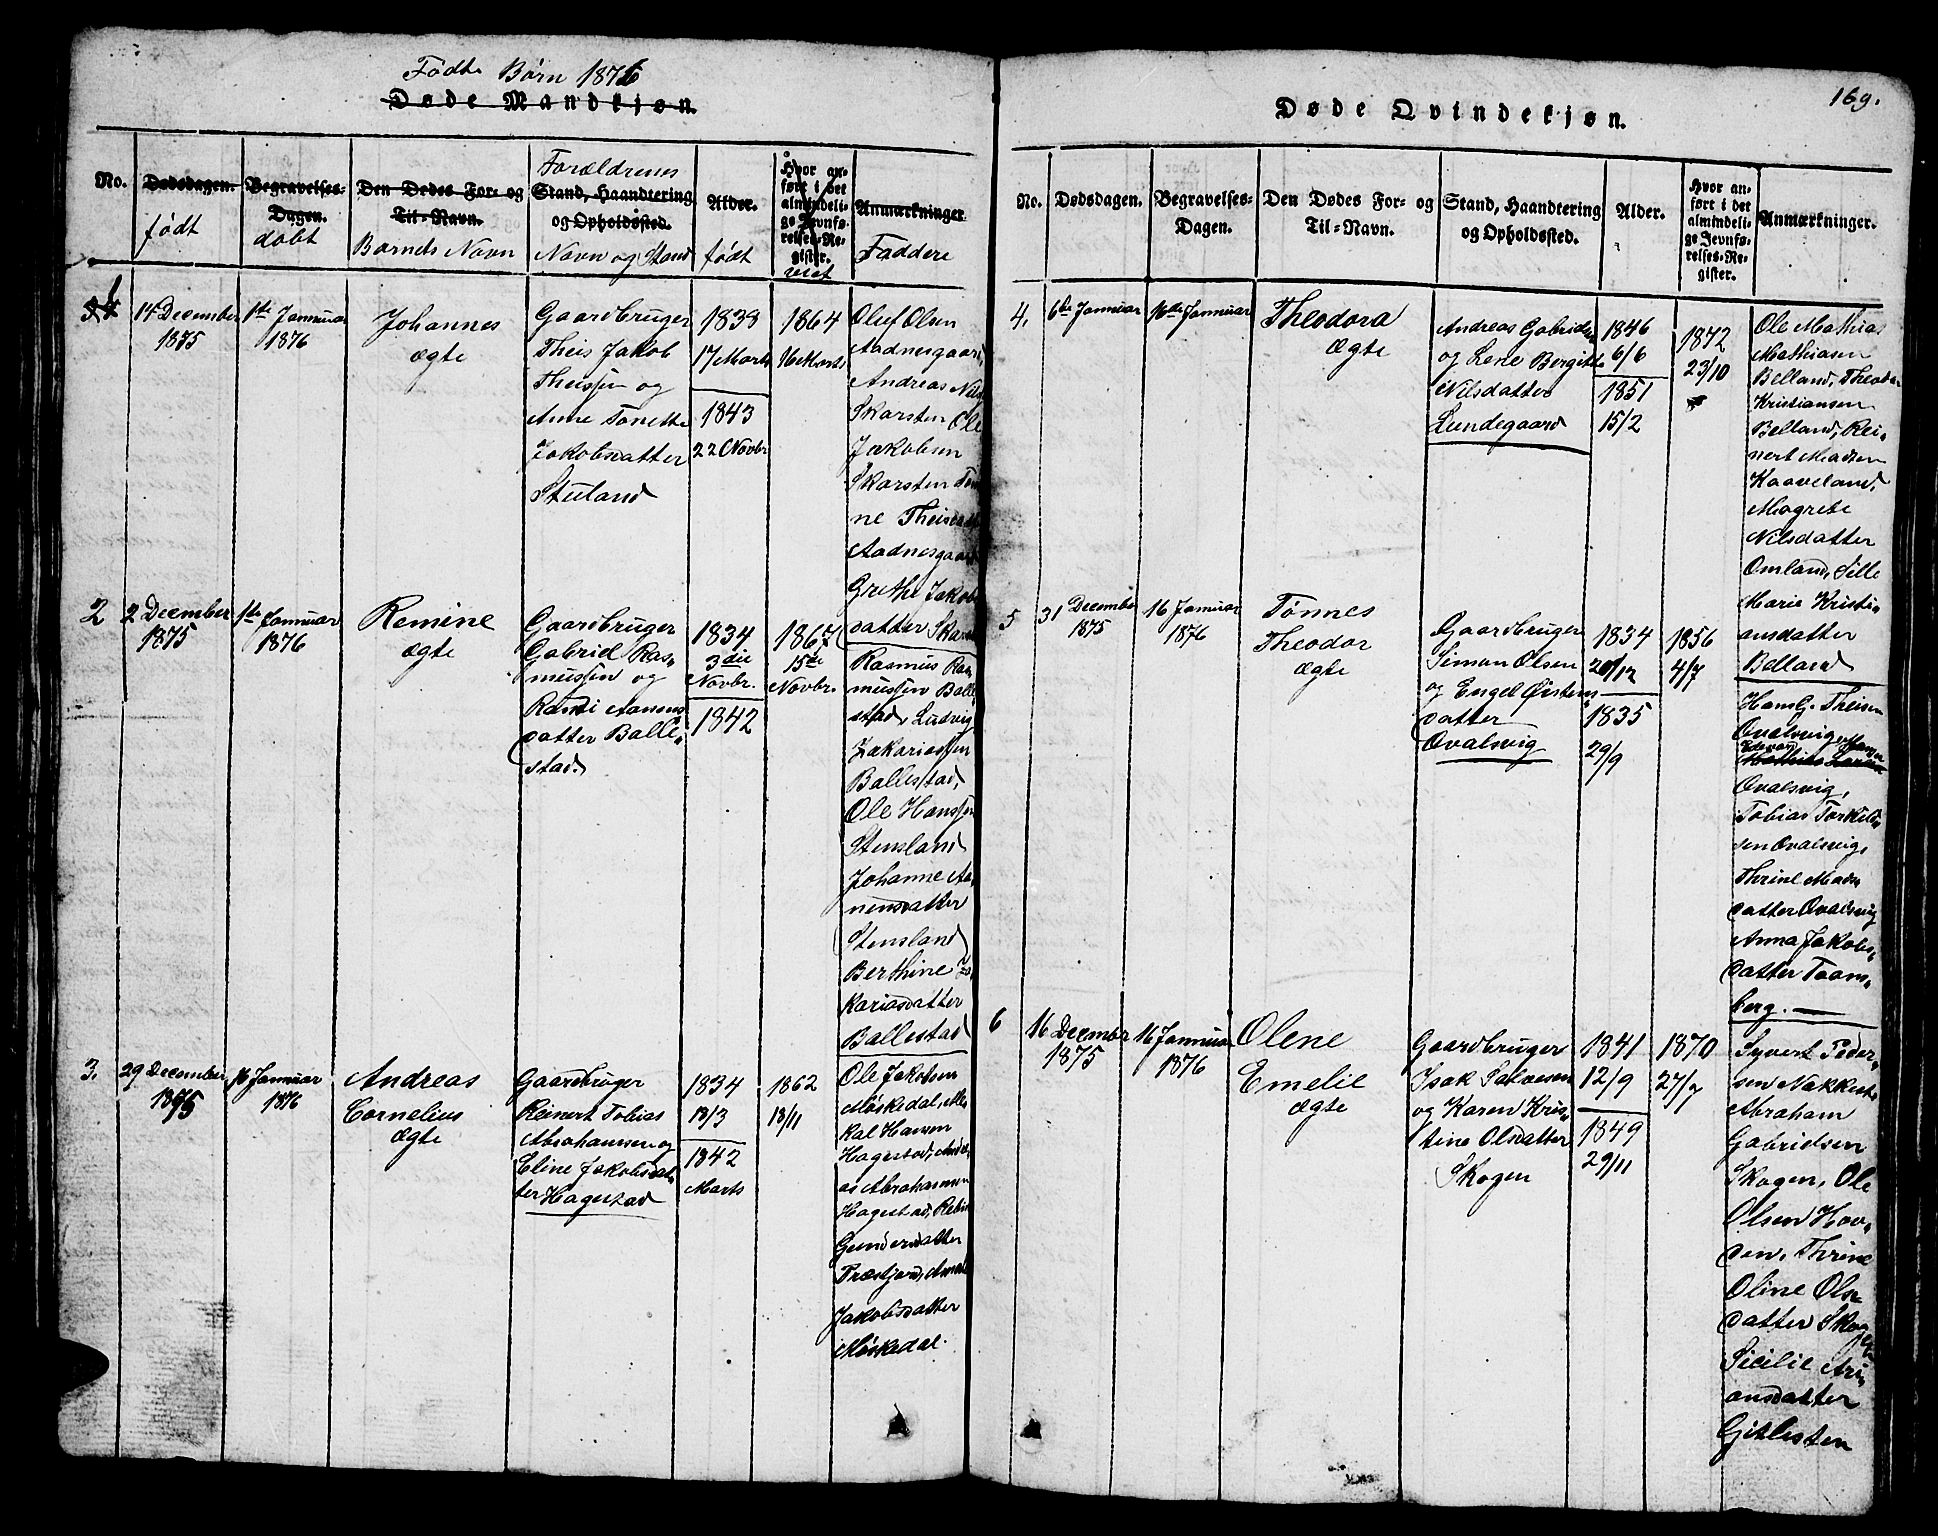 Fødte Børn 1876
Døde Mandkjøn.
No.
Dødsdagen.
født
Begravelses-
Dagen.
døbt
Den Dødes For- og
Til-Navn.
Barnets Navn
Forældrenes
Stand, Haandtering
og Opholdssted.
Navn og Stand
Alder.
født
Hvor an-
ført i det
almindeli-
ge Jevnfø-
relses-Re-
gister.
viet
Anmærkninger
Faddere
1
14 December
1875
1ste Januar
1876
Johannes
ægte
Gaardbruger
Theis Jakob
Theissen og
Anne Tonette
Jakobsdatter
Stuland
1838
17 Marts
1843
22 Novbr.
1864
16 Marts
Oluf Olsen
Aadnesgaard
Andreas Nils
Skarsten Ole
Jakobsen
Skarsten Ton
ne Theisdatt
Aadnesgaard
Grethe Jakobs
datter Skarst
2
2 December
1875
1ste Januar
1876
Remine
ægte
Gaardbruger
Gabriel Ras-
mussen og
Randi Aanens
datter Balle-
stad.
1834
3die
Novbr.
1842
1867
15de
Novbr.
Rasmus Ras
mussen Balle
stad, Ludvig
Zakariassen
Ballestad,
Ole Hanssen
Stensland
Johanne Aa-
nensdatter
Stensland
Berthine Za-
kariasdatter
Ballestad
3.
29 December
1875
16 Januar
1876
Andreas
Cornelius
ægte
Gaardbruger
Reinert Tobias
Abrahamsen og
Eline Jakobsdat
ter Hagestad
1834
13/3
1842
Marts
1862
18/11
Ole Jakobsen
Møskedal,
Hansen
Hagestad, Andre-
as Abrahamsen
Hagestad,
Gundersdatter
Træstjord,
Jakobsdatter
Møskedal.
169.
Døde Qvindekjøn.
No.
Dødsdagen.
Begravelses-
Dagen.
Den Dødes For- og
Til-Navn.
Stand, Haandtering
og Opholdssted.
Alder.
Hvor an-
ført i det
almindeli-
ge Jevnfø-
relses-Re-
gister.
Anmærkninger.
4.
6te Januar
16te Januar
Theodora
ægte
Andreas Gabriels
og Lene Bergitte
Nilsdatter
Lundegaard
1846
6/6
1851
15/2
1872
23/10
Ole Mathias
Mathiasen
Belland, Theodor
Kristiansen
Belland, Rei-
nert Madsen
Kaaveland,
Magrete
Nilsdatter
Omland, Sille
Marie Kristi-
ansdatter
Belland
5
31 December
1875
16 Januar
1876
Tønnes
Theodor
ægte
Gaardbruger
Simon Olsen
og Engel Østens-
datter
Ovalsvig
1834
20/12
1835
29/9
1856
4/7
Hans G. Theisen
Ovalsvig,
Ovalsvig,
Tobias Torkild-
sen Ovalsvig,
Thrine Mads-
datter Ovalsvig
Anna Jakobs-
datter Taams-
berg. —
6
16 December
1875
16 Januar
1876
Olene
Emelie
ægte
Gaardbruger
Isak Salvesen
og Karen Kris-
tine Olsdatter
Skogen
1841
12/9
1849
29/11
1870
27/7
Syvert Peder-
sen Nakkest-
Abraham
Gabrielsen
Skogen, Ole
Olsen Hov-
den, Thrine
Oline Ols-
datter Skogen
Sicilie Ari-
ansdatter
Gitlesten